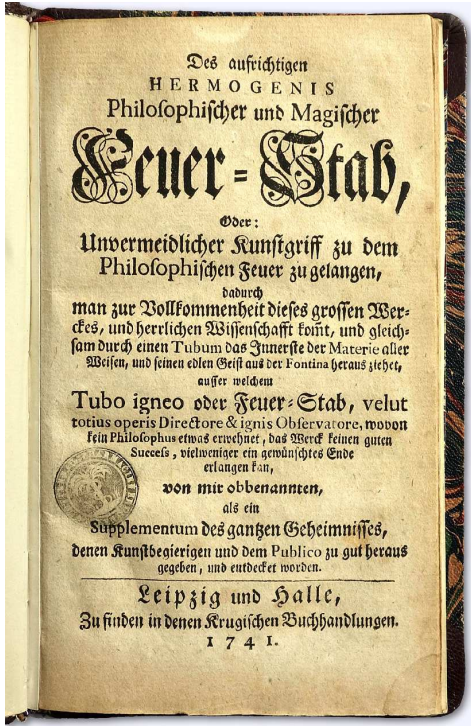 Des aufrichtigen
HERMOGENIS
Philosophischer und Magischer
Feuer=Stab,
Oder:
Unvermeidlicher Kunstgriff zu dem
Philosophischen Feuer zu gelangen,
dadurch
man zur Vollkommenheit dieses grossen Wer-
ckes, und herrlichen Wissenschafft kom̃t, und gleich-
sam durch einen Tubum das Innerste der Materie aller
Weisen, und seinen edlen Geist aus der Fontina heraus ziehet,
ausser welchem
Tubo igneo oder Feuer=Stab, velut
totius operis Directore & ignis Observatore, wovon
kein Philosophus etwas erwehnet, das Werck keinen guten
Success, vielweniger ein gewünschtes Ende
erlangen kan,
von mir obbenannten,
als ein
Supplementum des gantzen Geheimnisses,
denen Kunstbegierigen und dem Publico zu gut heraus
gegeben, und entdecket worden.
Leipzig und Halle,
Zu finden in denen Krugischen Buchhandlungen.
1741.